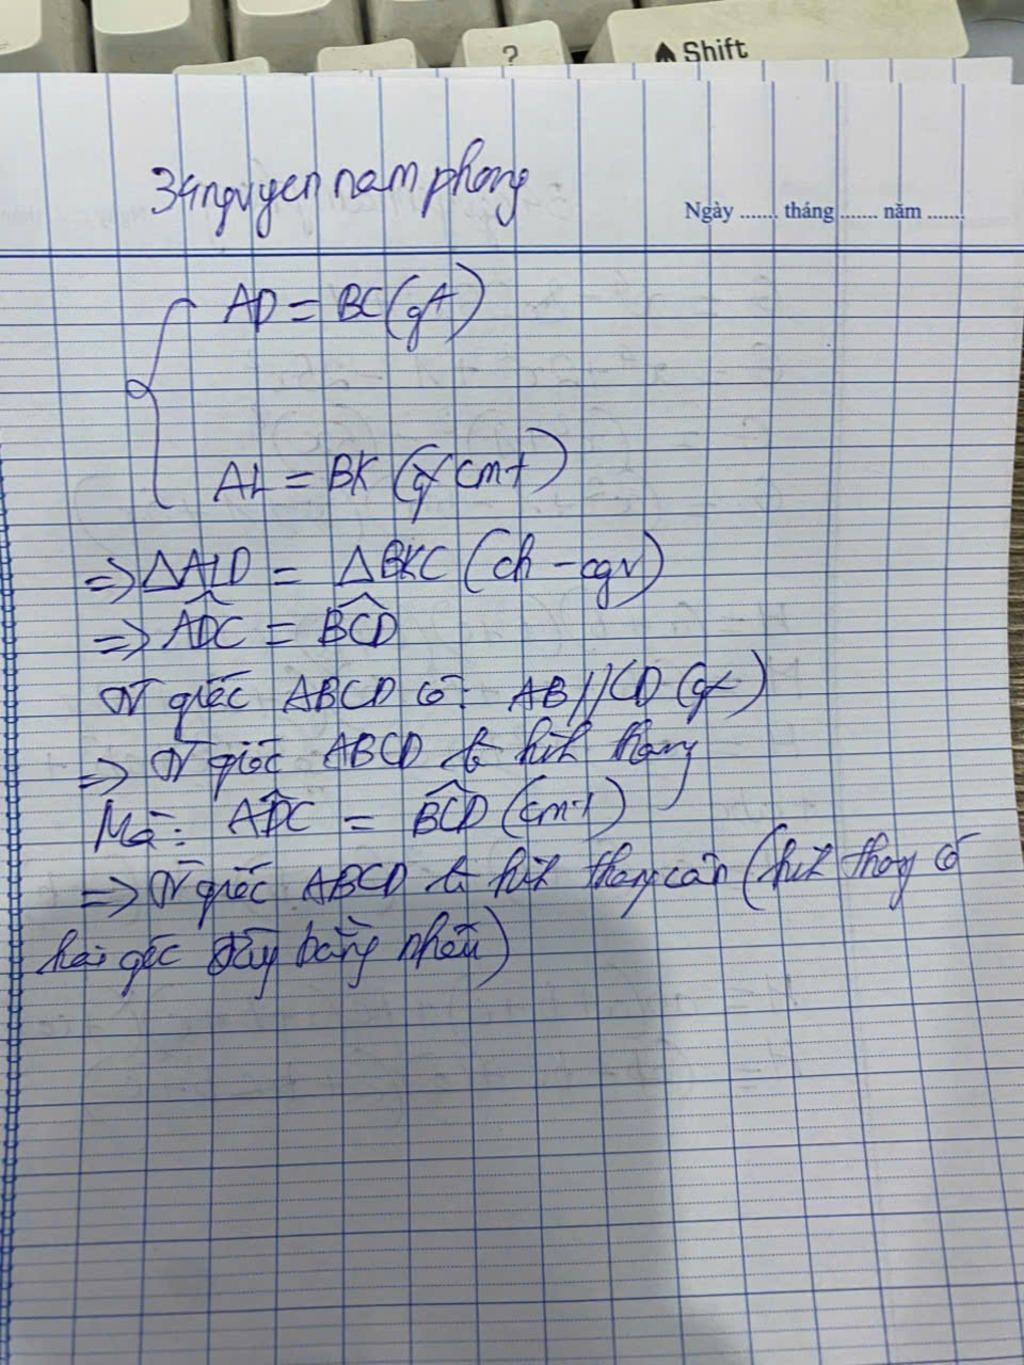 ?
Shift
34 nguyen nam phong
Ngày ....... tháng ....... năm .......
AD = BC (gt)
AH = BK (cmt)
=> ΔAHD = ΔBKC (ch - cgv)
=> ADC = BCD
Tứ giác ABCD có: AB // CD (gt)
=> Tứ giác ABCD là hình thang
Mà: ADC = BCD (cmt)
=> Tứ giác ABCD là hình thang cân (hình thang có
hai góc đáy bằng nhau)